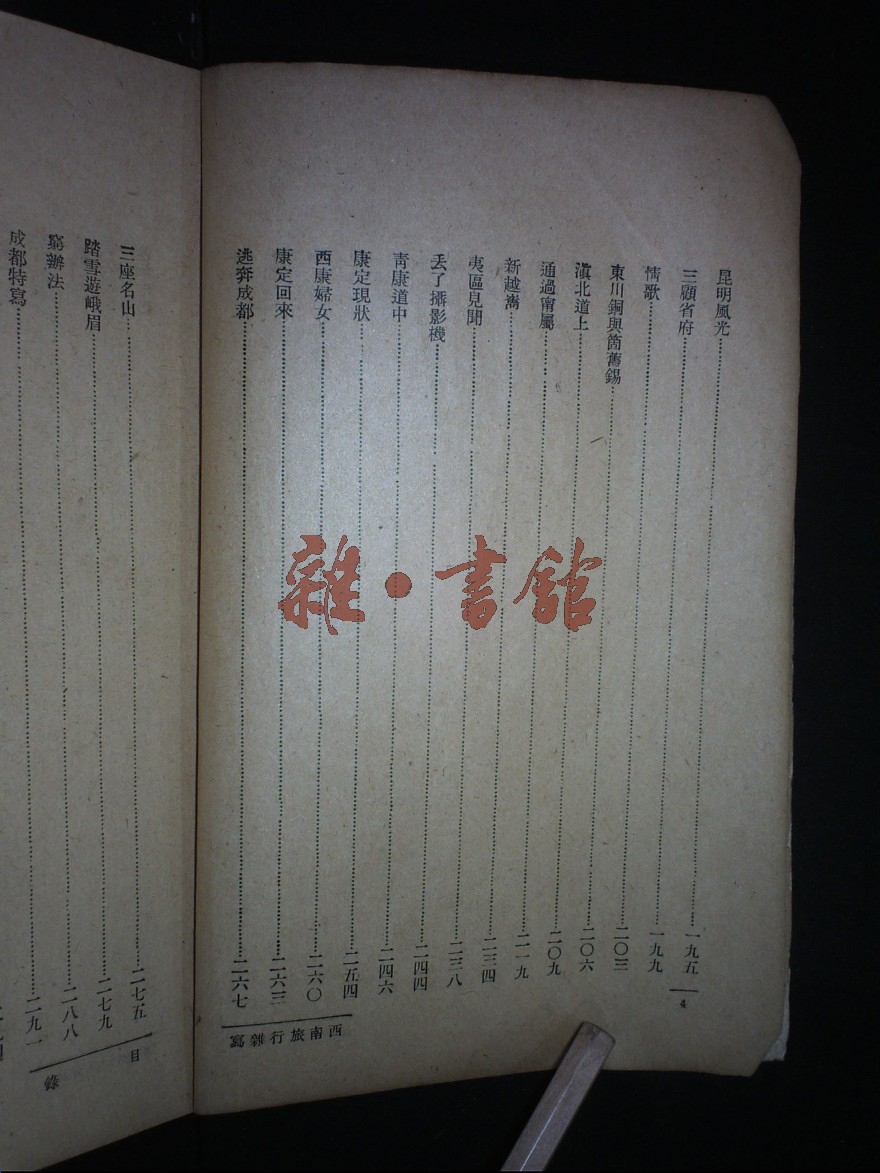 昆明風光……一九五
三顧省府……一九九
情歌……二〇三
東川銅與箇舊錫……二〇六
滇北道上……二〇九
通過甯屬……二一九
新越嶲……二三四
夷區見聞……二三八
丟了攝影機……二四四
青康道中……二四六
康定現狀……二五四
西康婦女……二六〇
康定回來……二六三
逃奔成都……二六七
4
西南旅行雜寫
三座名山……二七五
踏雪遊峨眉……二七九
窮辦法……二八八
成都特寫……二九一
目錄
雜·書館